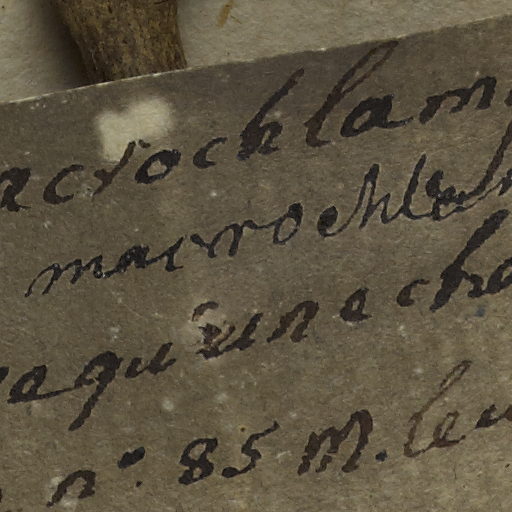 acrochlam
macrochlam
equ'une cha
n° 85 M. leu